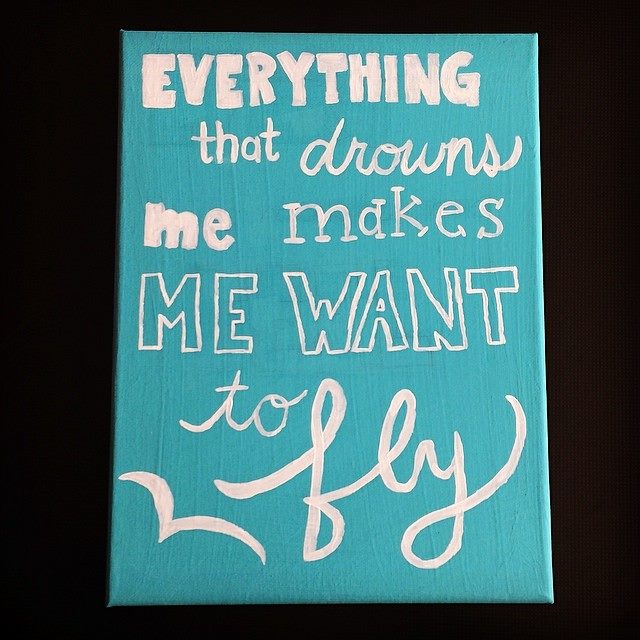 EVERYTHING
that drowns
me makes
ME WANT
to fly